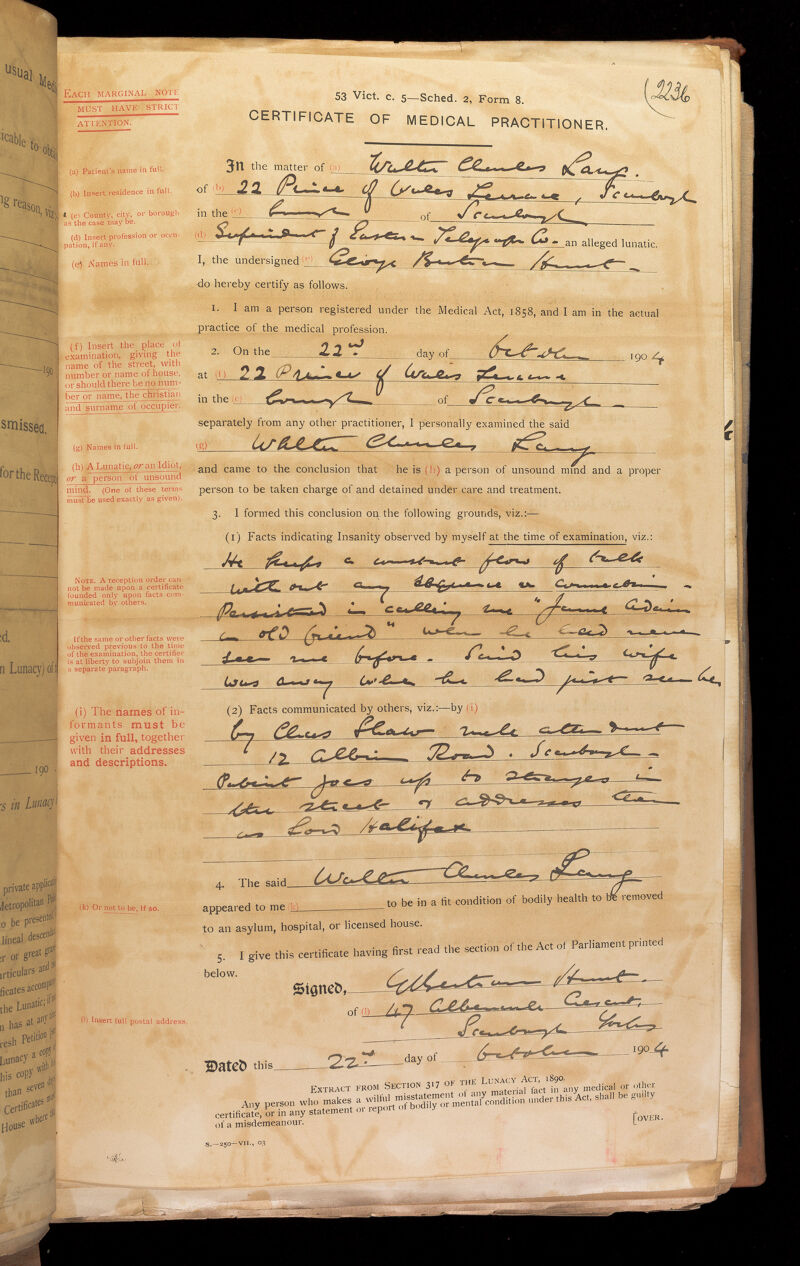 usual Med
icable to obta
ng reason, viz
190
smissed.
for the Recept
d.
n Lunacy) of
190
's in Lunacy
private applica
Metropolitan Pol
o be presented
lineal descend
r or great gran
articulars and
ficates accomp
the Lunatic; if
n has at any
resh Petition
Lunacy a copy
his copy with
than seven
Certificates
House where
EACH MARGINAL NOTE
MUST HAVE STRICT
ATTENTION.
(a) Patient's name in full.
(b) Insert residence in full.
(c) County, city, or borough
as the case may be.
(d) Insert profession or occu-
pation, if any.
(e) Names in full.
(f) Insert the place of
examination, giving the
name of the street, with
number or name of house,
or should there be no num-
ber or name, the christian
and surname of occupier.
(g) Names in full.
(h) A Lunatic, or an Idiot,
or a person of unsound
mind. (One of these terms
must be used exactly as given).
NOTE. A reception order can-
not be made upon a certificate
founded only upon facts com-
municated by others.
If the same or other facts were
observed previous to the time
of the examination, the certifier
is at liberty to subjoin them in
a separate paragraph.
(i) The names of in-
formants must be
given in full, together
with their addresses
and descriptions.
(k) Or not to be, if so.
(l) Insert full postal address.
2236
53 Vict. c. 5—Sched. 2, Form 8.
CERTIFICATE OF MEDICAL PRACTITIONER.
In the matter of (a) Walter Charles Lang.
of (b) 22 Prince of Wales Terrace, Scarborough
in the (c) Borough of Scarborough
(d) Superintendent of Eastern Telegraph Co - an alleged lunatic.
I, the undersigned (e) George Bertram Hunt -
do hereby certify as follows.
1. I am a person registered under the Medical Act, 1858, and I am in the actual
practice of the medical profession.
2. On the 22nd day of October 1904
at (f) 22 Prince of Wales Terrace
in the (c) Borough of Scarborough -
separately from any other practitioner, I personally examined the said
(g) Walter Charles Lang
and came to the conclusion that he is (h) a person of unsound mind and a proper
person to be taken charge of and detained under care and treatment.
3. I formed this conclusion on the following grounds, viz.:—
(1) Facts indicating Insanity observed by myself at the time of examination, viz.:
He keeps a constant flow of talk
without any sequence or connection -
Persisted in calling me "James Adain
an old friend" when he had never
seen me before. Said his wife
was away when he had just seen her
(2) Facts communicated by others, viz.:—by (i)
by Chas Shaw male attendant
12 Albion Road. Scarborough -
Patient goes up to strangers in
the street & addresses them
as Lord Halifax
4. The said Walter Charles Lang
appeared to me (k) to be in a fit condition of bodily health to be removed
to an asylum, hospital, or licensed house.
5. I give this certificate having first read the section of the Act of Parliament printed
below.
Signed, G Bertram Hunt.
of (l) 47 Albemarle Crescent,
Scarborough Yorks
Dated this 22nd day of October 1904
EXTRACT FROM SECTION 317 OF THE LUNACY ACT, 1890.
Any person who makes a wilful misstatement of any material fact in any medical or other
certificate, or in any statement or report of bodily or mental condition under this Act, shall be guilty
of a misdemeanour.
[OVER.
S.—250—VII., 03